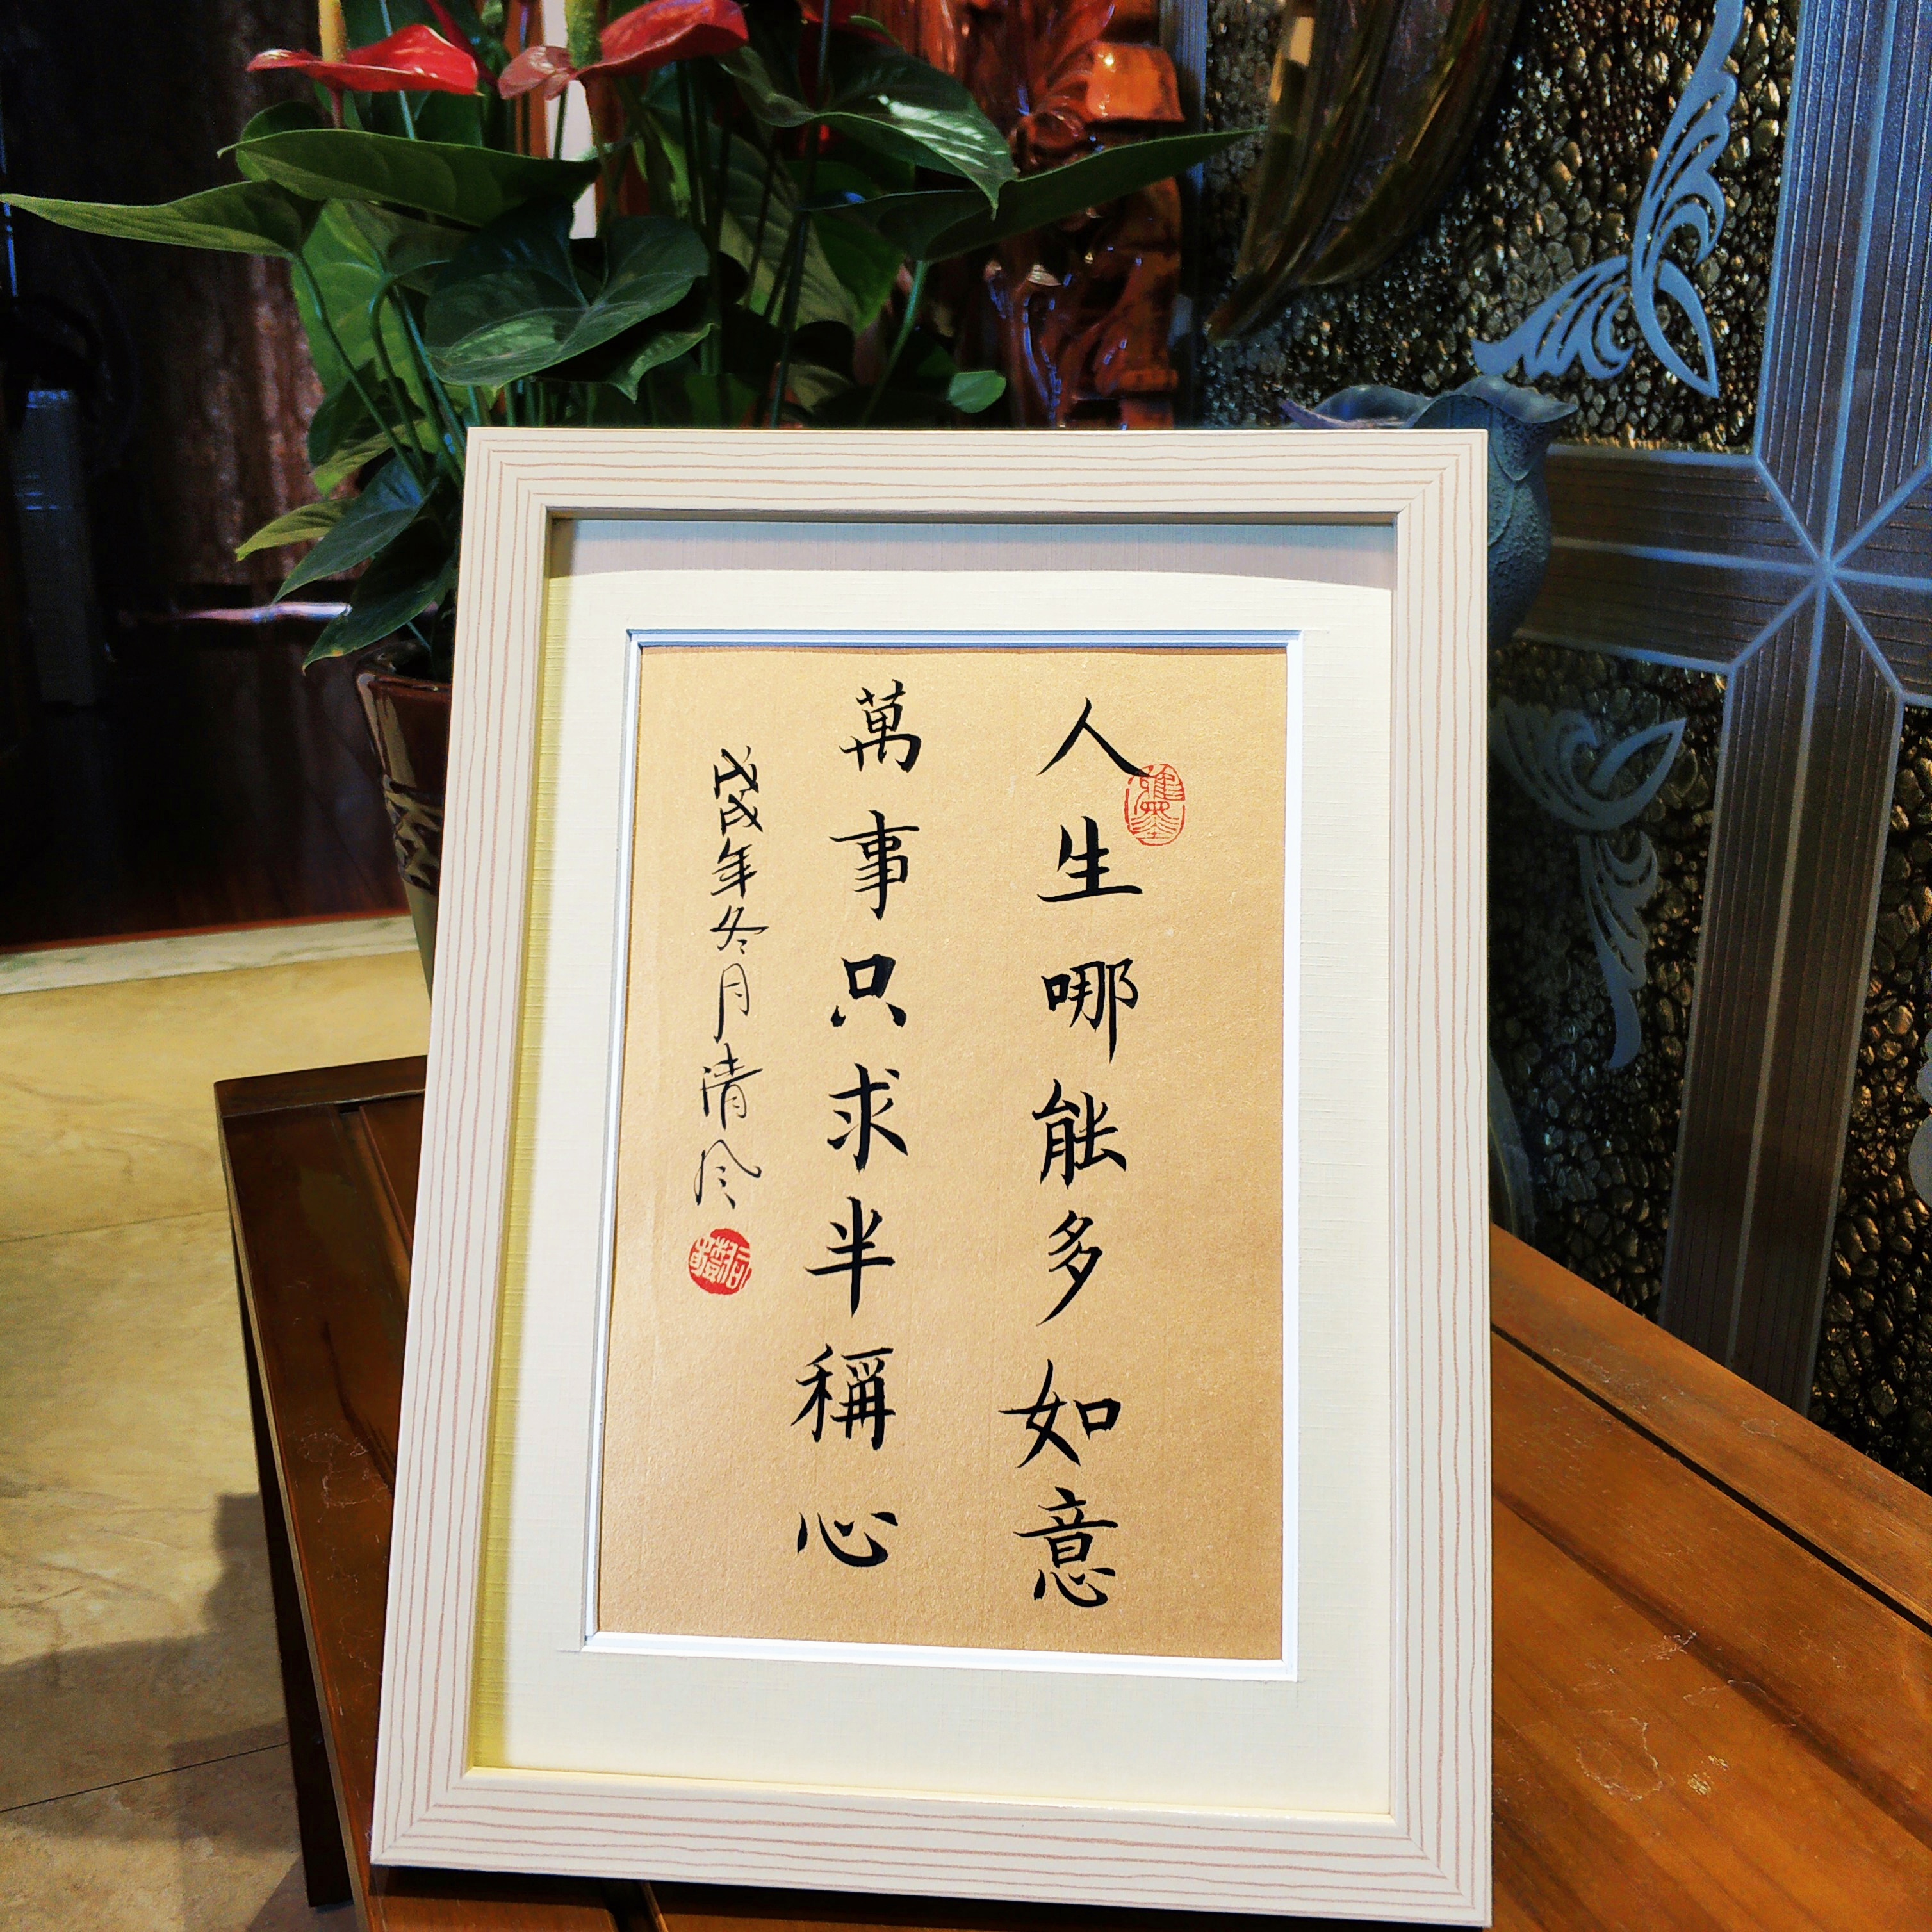 人生哪能多如意
萬事只求半稱心
戊戌年冬月清风